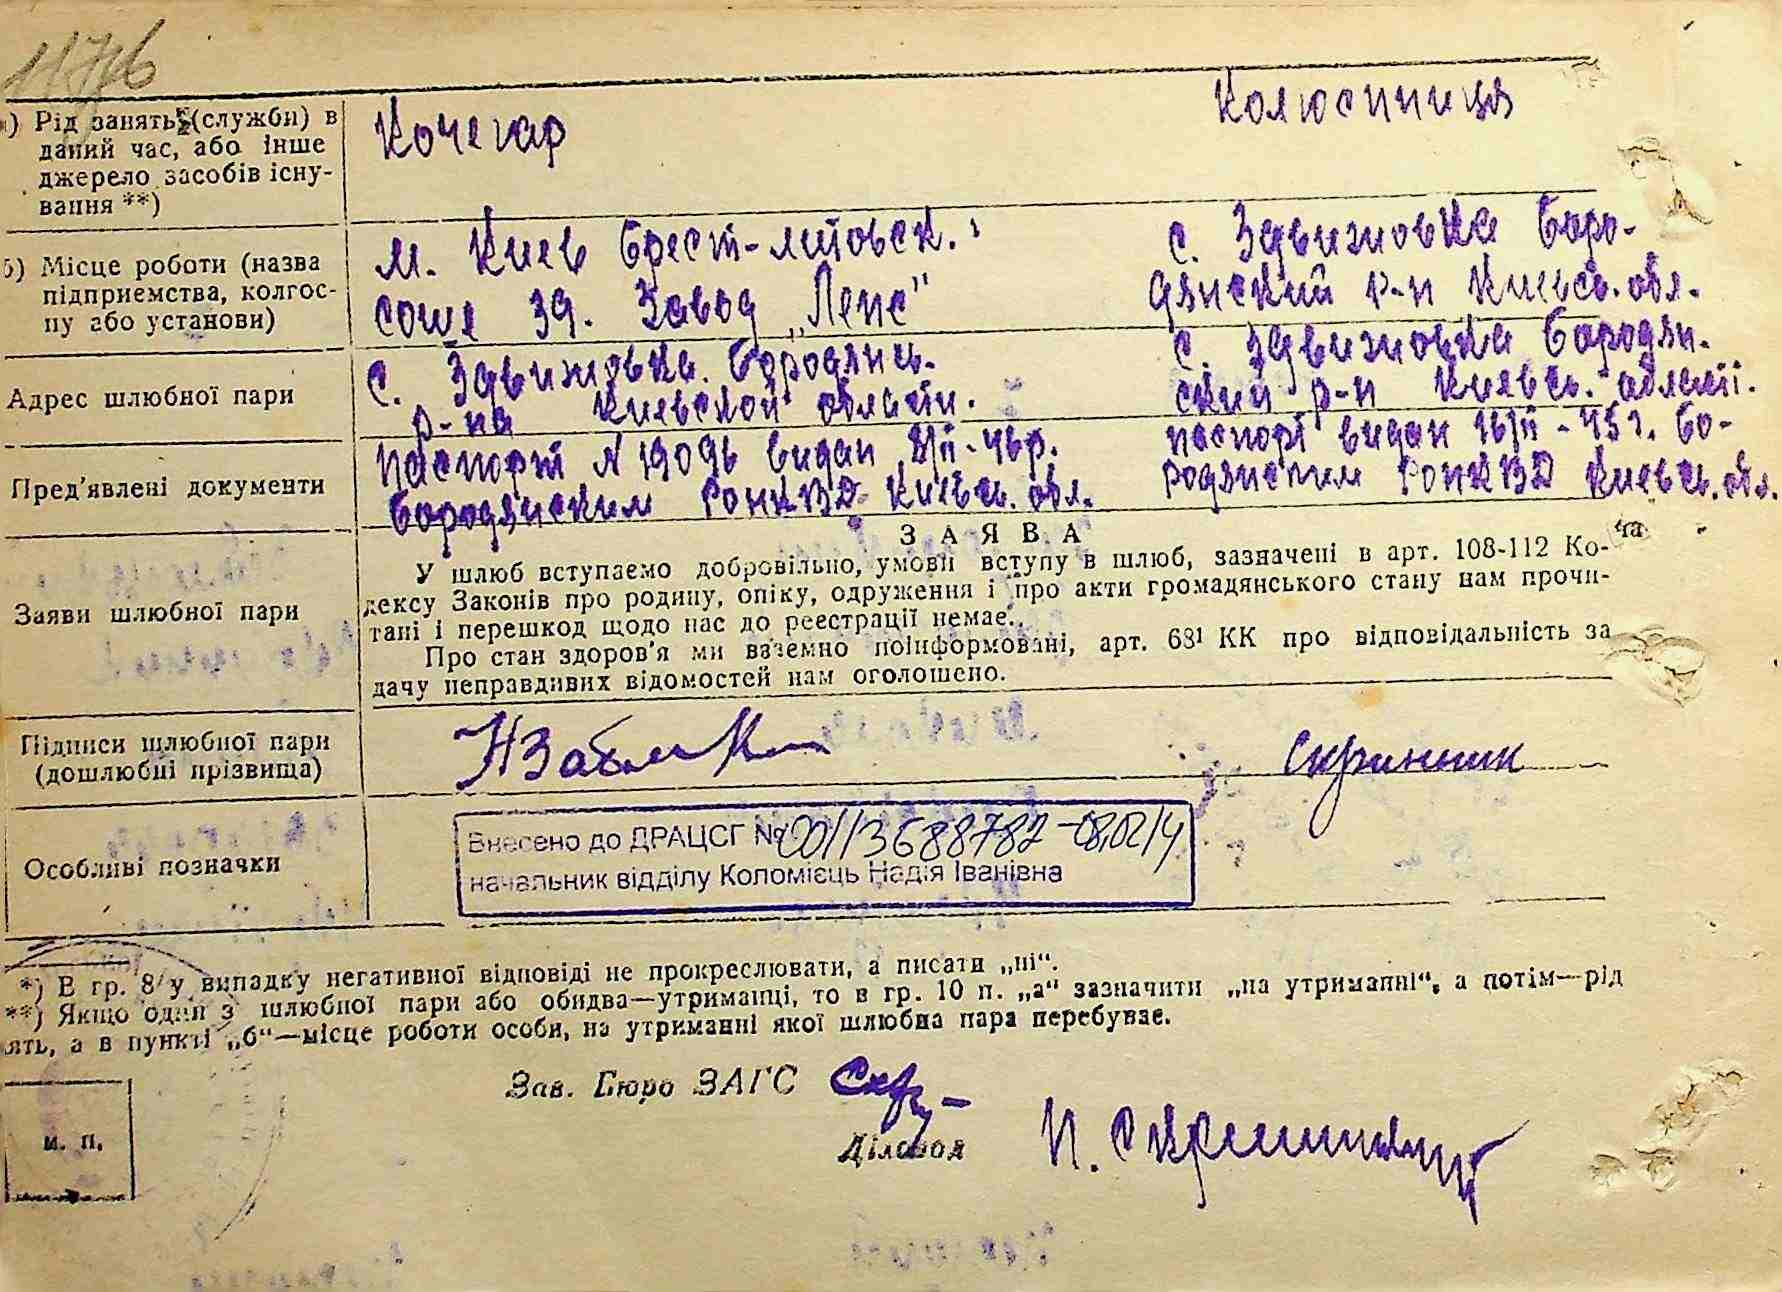 1176
а) Рід занять (служби) в
даний час, або інше
джерело засобів існу-
вання **)
Кочегар
Колюсниця
б) Місце роботи (назва
підприємства, колгос-
пу або установи)
м. Киев Брест-литовск.
соше 39. Завод „Лепс"
с. Здвижовка Боро-
дянский р-н Киевсь. обл.
Адрес шлюбної пари
с. Здвижовка. Бородянсь.
р-на Киевской области.
с. Здвижовка Бородян.
ский р-н Киевсь. области.
Пред'явлені документи
паспорт N 19096 видан 8/II-46р.
Бородянским РОНКВД Киевсь. обл.
паспорт видан 16/II-45 г. Бо-
родянским РОНКВД Киевсь. обл.
Заяви шлюбної пари
ЗАЯВА
У шлюб вступаємо добровільно, умови вступу в шлюб, зазначені в арт. 108-112 Ко-
дексу Законів про родину, опіку, одруження і про акти громадянського стану нам прочи-
тані і перешкод щодо нас до реєстрації немає.
Про стан здоров'я ми взаємно поінформовані, арт. 68¹ КК про відповідальність за
дачу неправдивих відомостей нам оголошено.
Підписи шлюбної пари
(дошлюбні прізвища)
Скрипник
Особливі позначки
Внесено до ДРАЦСГ № 00113688782-08.02.14
начальник відділу Коломієць Надія Іванівна
*) В гр. 8 у випадку негативної відповіді не прокреслювати, а писати „ні".
**) Якщо один з шлюбної пари або обидва—утриманці, то в гр. 10 п. „а" зазначити „на утриманні", а потім—рід
ять, а в пункті „б"—місце роботи особи, на утриманні якої шлюбна пара перебуває.
Зав. Бюро ЗАГС
Діловод
м. п.